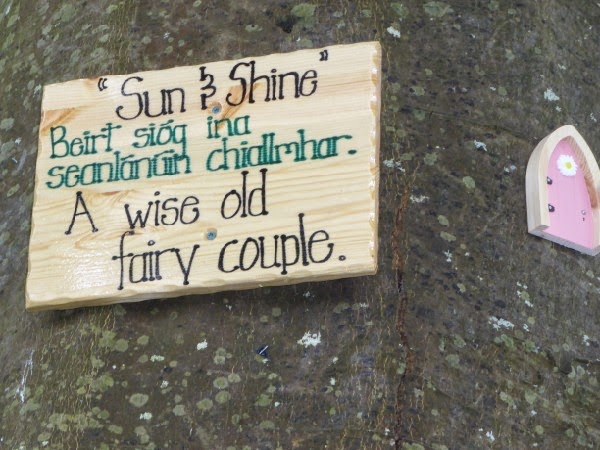 "Sun & Shine"
Beirt sióg ina
seanlánúin chiallmhar.
A wise old
fairy couple.